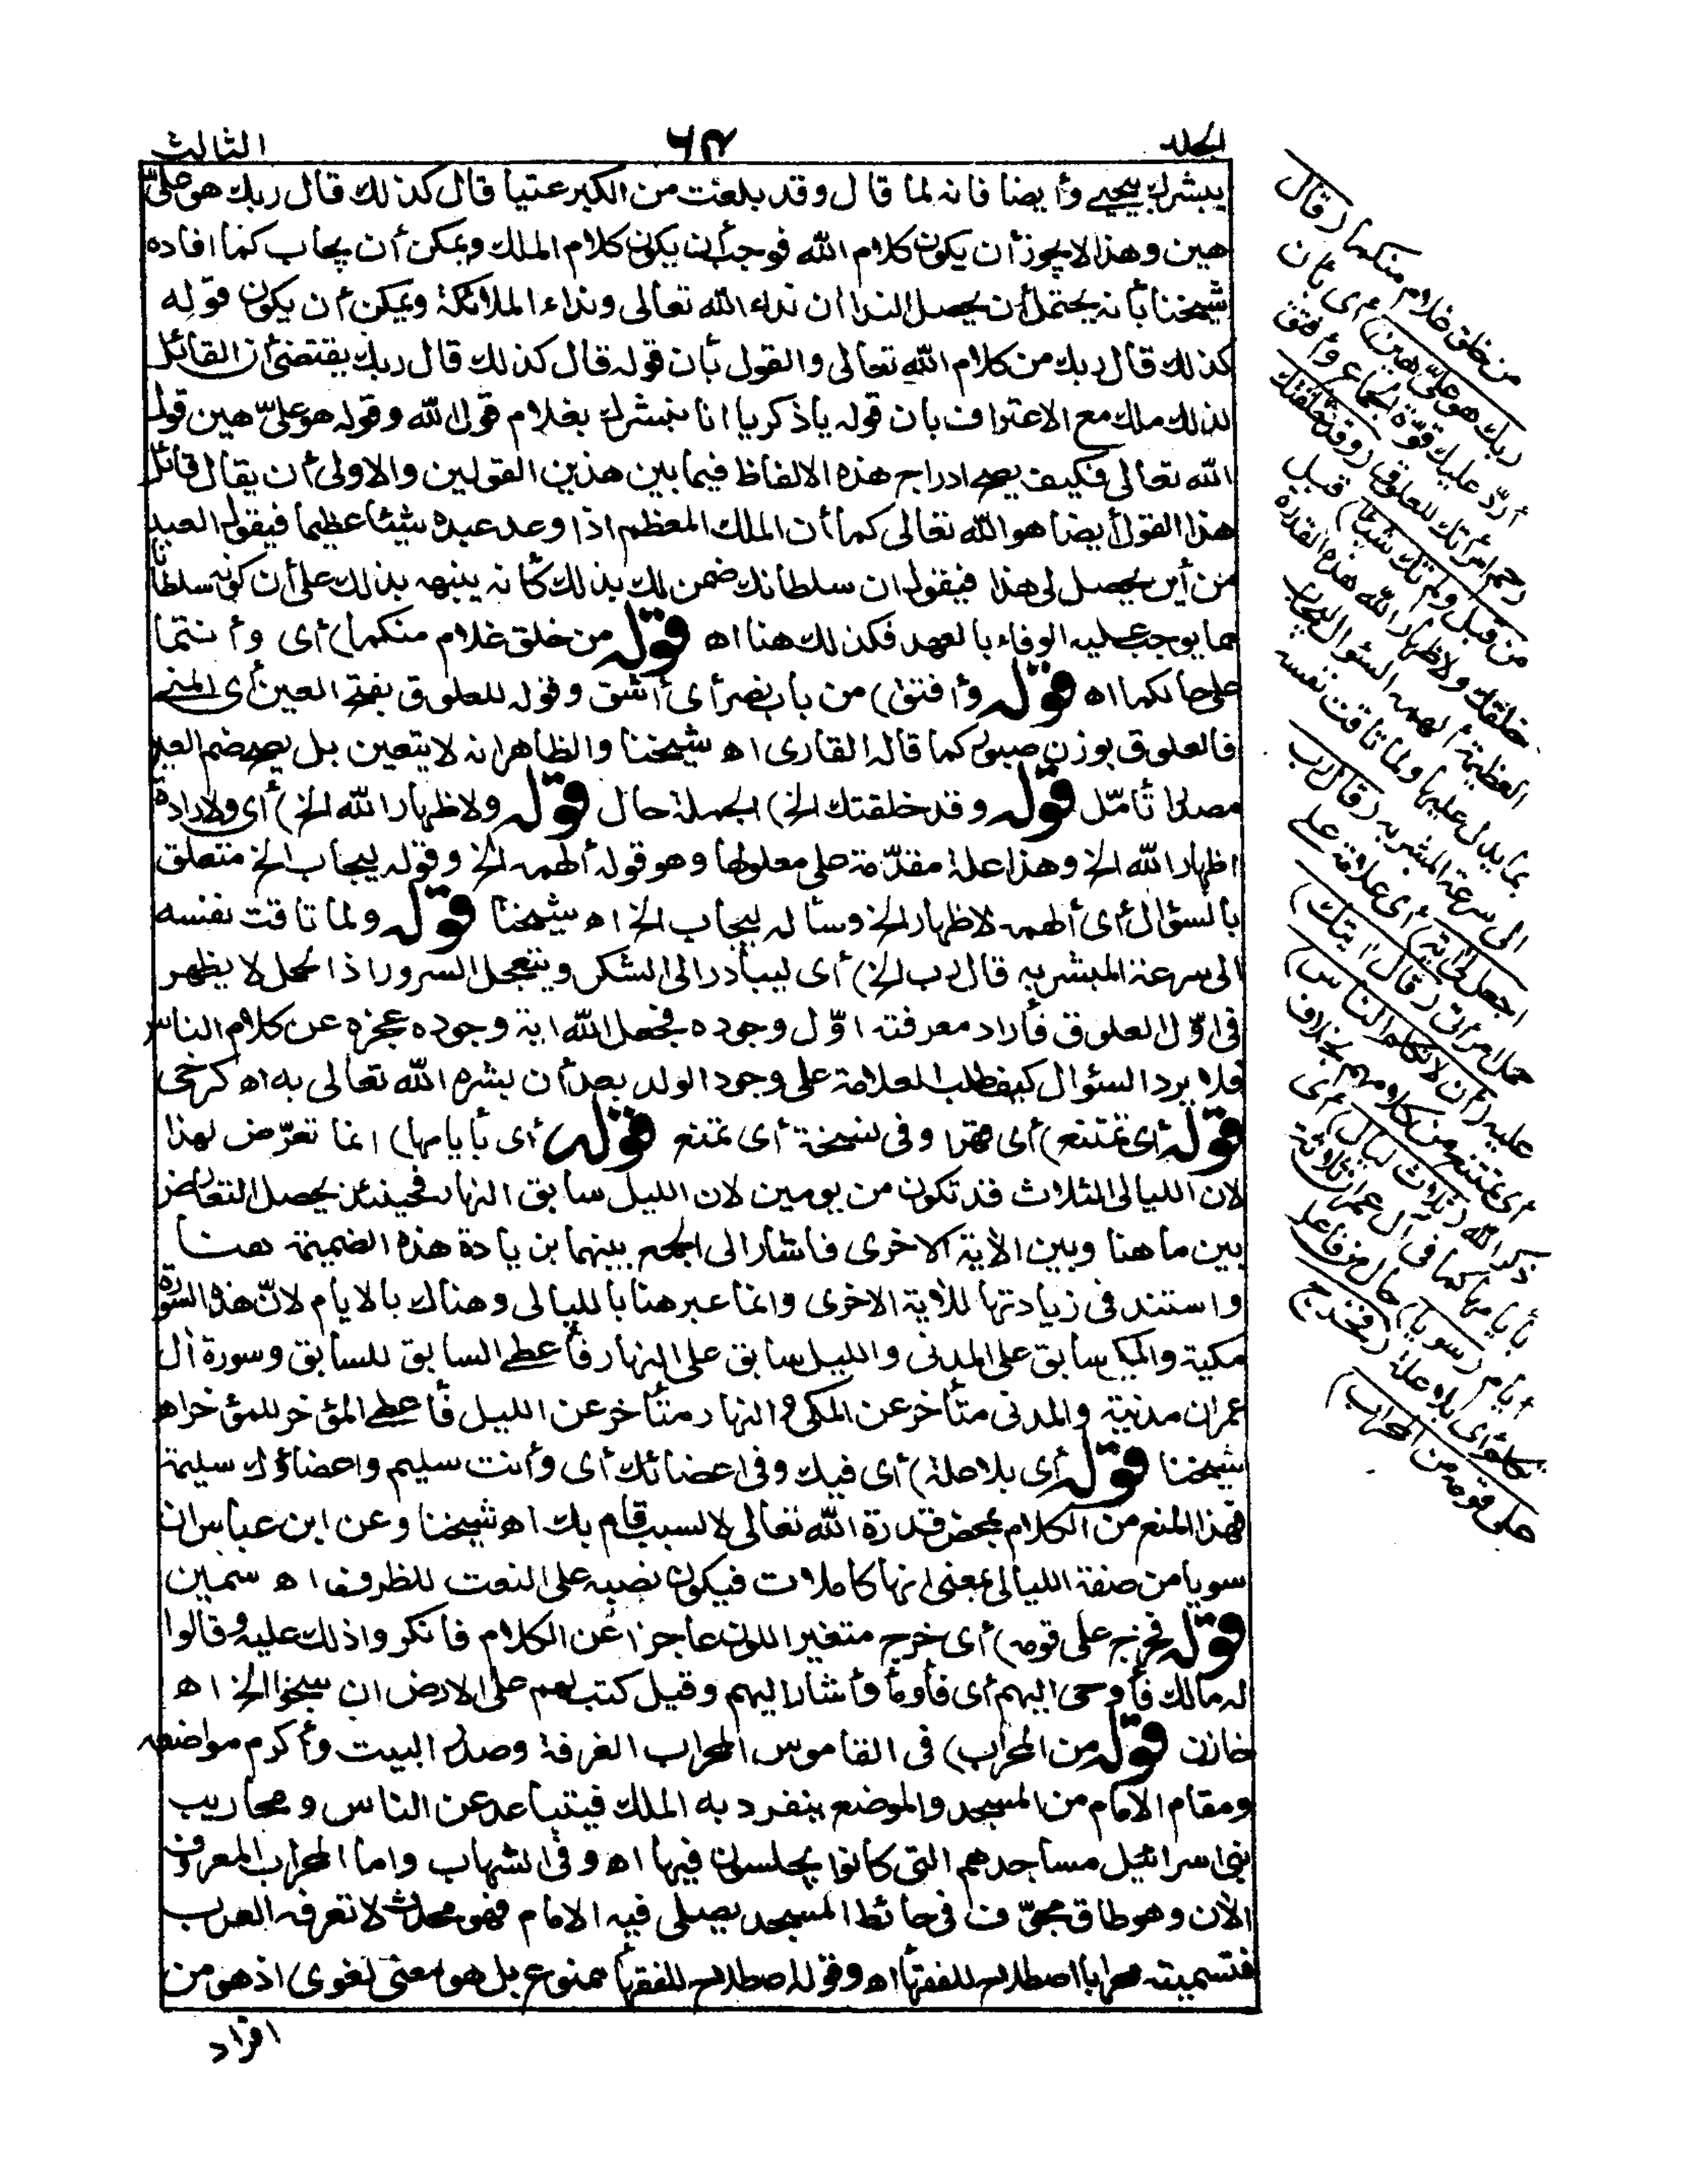 الجلد ٦٤ الثالث
يبشرك بيحيى وأيضا فانه لما قال وقد بلغت من الكبر عتيا قال كذلك قال ربك هو علىّ
هين وهذا لا يجوز أن يكون كلام الله فوجب أن يكون كلام الملك ويمكن أن يجاب كما افاده
شيخنا بأنه يحتمل أن يحصل النداان نداء الله تعالى ونداء الملائكة ويمكن أن يكون قوله
كذلك قال ربك من كلام الله تعالى والقول بأن قوله قال كذلك قال ربك يقتضى أن القائل
لذلك ملك مع الاعتراف بان قوله ياذكريا انا نبشرك بغلام قول الله وقوله هو علىّ هين قول
الله تعالى فكيف يصح ادراج هذه الالفاظ فيما بين هذين القولين والاولى أن يقال قائل
هذا القول أيضا هو الله تعالى كما أن الملك المعظم اذا وعد عبده شيئا عظيما فيقول العبد
من أين يحصل لى هذا فيقول ان سلطانك ضمن لك بذلك كأنه ينبهه بذلك على أن كونه سلطانا
مما يوجب عليه الوفاء بالعهد فكذلك هنا اه قوله من خلق غلام منكما) أى وأنتما
على حالكما اه قوله وأفتق) من باب نصر أى أشق وقوله للعلوق بفتح العين أى المنى
فالعلوق بوزن صبور كما قاله القارى اه شيخنا والظاهر انه لا يتعين بل يصح ضم العين
مصدرا تأمّل قوله وقد خلقتك الخ) الجملة حال قوله ولاظهار الله الخ) أى ولارادة
اظهار الله الخ وهذا علة مقدّمة على معلولها وهو قوله ألهمه الخ وقوله ليجاب الخ متعلق
بالسؤال أى ألهمه لاظهار الخ وسأله ليجاب الخ اه شيخنا قوله ولما تاقت نفسه
الى سرعة المبشر به قال رب الخ) أى ليبادر الى الشكر ويتعجل السرور اذ الحمل لا يظهر
فى اوّل العلوق فأراد معرفته اوّل وجوده فجعل الله اية وجوده عجزه عن كلام الناس
فلا يرد السئوال كيف طلب العلامة على وجود الولد بعد أن بشره الله تعالى به اه كرخى
قوله أى تمتنع) أى قهرا وفى نسخة أى تمتنع قوله أى بأيامها) انما تعرّض لهذا
لان الليالى الثلاث قد تكون من يومين لان الليل سابق النهار فحينئذ يحصل التعارض
بين ما هنا وبين الأية الاخرى فاشار الى الجمع بينهما بزيادة هذه الضميمة هنا
واستند فى زيادتها للأية الاخرى وانما عبر هنا بالليالى وهناك بالايام لانّ هذه السورة
مكية والمكى سابق على المدنى والليل سابق على النهار فأعطى السابق للسابق وسورة أل
عمران مدنية والمدنى متأخر عن المكى والنهار متأخر عن الليل فأعطى المؤخر للمؤخر اه
شيخنا قوله أى بلا علة) أى فيك وفى اعضائك أى وأنت سليم واعضاؤك سليمة
فهذا المنع من الكلام بمحض قدرة الله تعالى لا لسبب قام بك اه شيخنا وعن ابن عباس ان
سويا من صفة الليالى بمعنى انها كاملات فيكون نصبه على النعت للظرف اه سمين
قوله فخرج على قومه) أى خرج متغير اللون عاجزا عن الكلام فأنكروا ذلك عليه وقالوا
له مالك فأوحى اليهم أى فأومأ وأشار اليهم وقيل كتب لهم على الارض ان سبحوا الخ اه
خازن قوله من المحراب) فى القاموس المحراب الغرفة وصدر البيت وأكرم مواضعه
ومقام الامام من المسجد والموضع ينفرد به الملك فيتباعد عن الناس ومحاريب
بنى اسرائيل مساجدهم التى كانوا يجلسون فيها اه وفى الشهاب واما المحراب المعروف
الأن وهو طاق مجوّف فى حائط المسجد يصلى فيه الامام فهو محدث لا تعرفه العرب
فتسميته محرابا اصطلاح للفقهاء اه وقوله اصطلاح للفقهاء ممنوع بل هو معنى لغوى اذ هو من
افراد
من خلق غلام منكما (قال
ربك هو علىّ هين) أى بأن
أردّ عليك قوّة الجماع وأفتق
رحم امرأتك للعلوق (وقد خلقتك
من قبل ولم تك شيئا) قبل
خلقك ولاظهار الله هذه القدرة
العظيمة ألهمه السئوال ليجاب
بما يدل عليها ولما تاقت نفسه
الى سرعة المبشر به (قال رب
اجعل لى آية) أى علامة على
حمل امرأتى (قال ايتك)
عليه (أن لا تكلم الناس)
أى تمتنع من كلامهم بخلاف
ذكر الله (ثلاث ليال) أى
بأيامها كما فى آل عمران ثلاثة
أيام (سويا) حال من فاعل
تكلم أى بلا علة (فخرج
على قومه من المحراب)